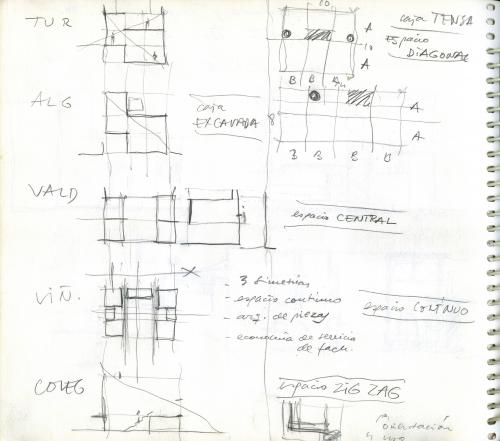 TUR
10
caja TENSA
ESpacio
DIAGONAL
A
10
A
B B
ALG
caja
EXCAVADA
8
A
A
B B B B
VALD
espacio CENTRAL
VIÑ.
- 3 simetrías
- espacio continuo
- arq. de piezas
- economía de servicio
de fach.
espacio CONTÍNUO
COLEG
espacio ZIG ZAG
orientación
y uso